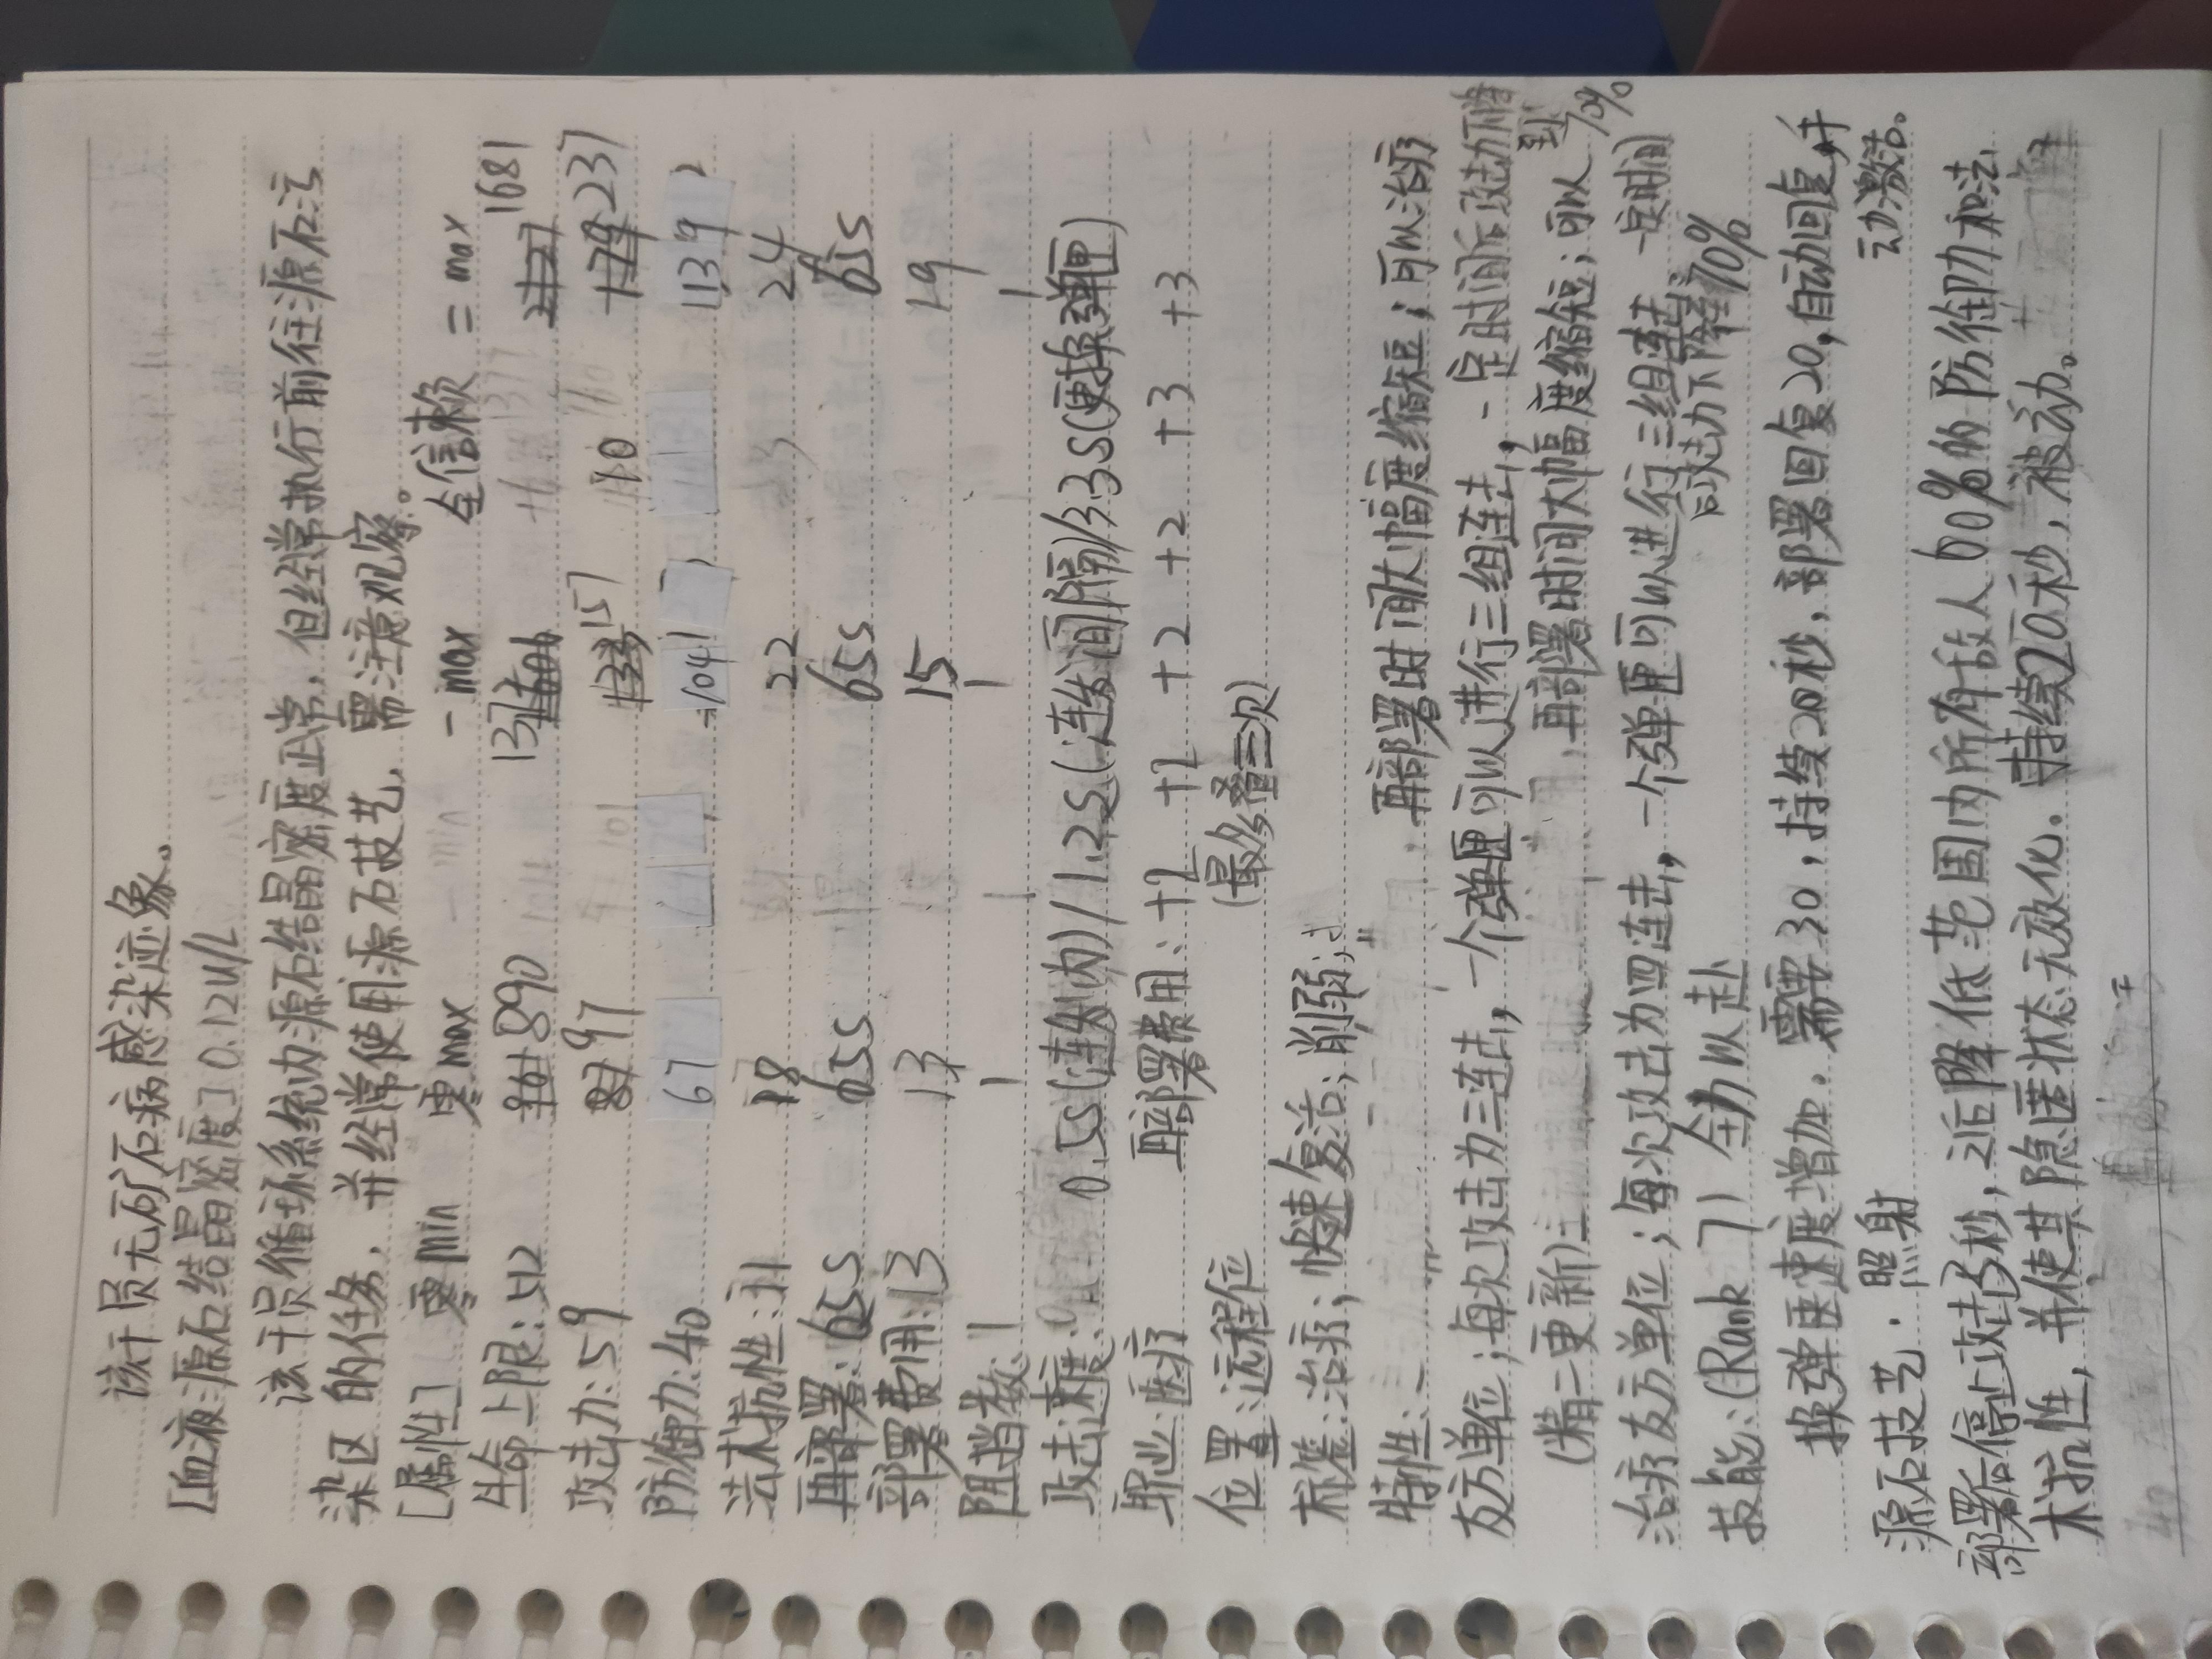 该干员无矿石病感染迹象。
[血液源石结晶密度] 0.12u/L
该干员循环系统内源石结晶密度正常，但经常执行前往源石污
染区的任务，并经常使用源石技艺，需注意观察。
[属性] 零min 零max 一max 全信赖 二max
生命上限：512 890 1376 1681
攻击力：59 97 157 110 237
防御力：40 67 104 113
法术抗性：11 18 22 24
再部署：65s 65s 65s 65s
部署费用：13 13 15 19
阻挡数：1 1 1 1
攻击速度：0.5s(连发内)/1.2s(连发间隔)/3.3s(更换弹匣)
职业：医疗 再部署费用：+2 +2 +2 +2 +3 +3
位置：远程位 (最多叠三次)
标签：治疗；快速复活；削弱；
特性： 再部署时间大幅度缩短；可以治疗
友方单位；每次攻击为三连击，一个弹匣可以进行三组连击，一定时间后攻击力下降
到70%
(精二更新) 再部署时间大幅度缩短；可以
治疗友方单位；每次攻击为四连击，一个弹匣可以进行三组连击，一定时间
后攻击力下降至70%
技能：(Rank 7) 全力以赴
换弹匣速度增加。需要30，持续20秒，部署回复20，自动回复，手
动激活。
源石技艺·照射
部署后停止攻击3秒，之后降低范围内所有敌人60%的防御力和法
术抗性，并使其隐匿状态无效化。持续20秒，被动。